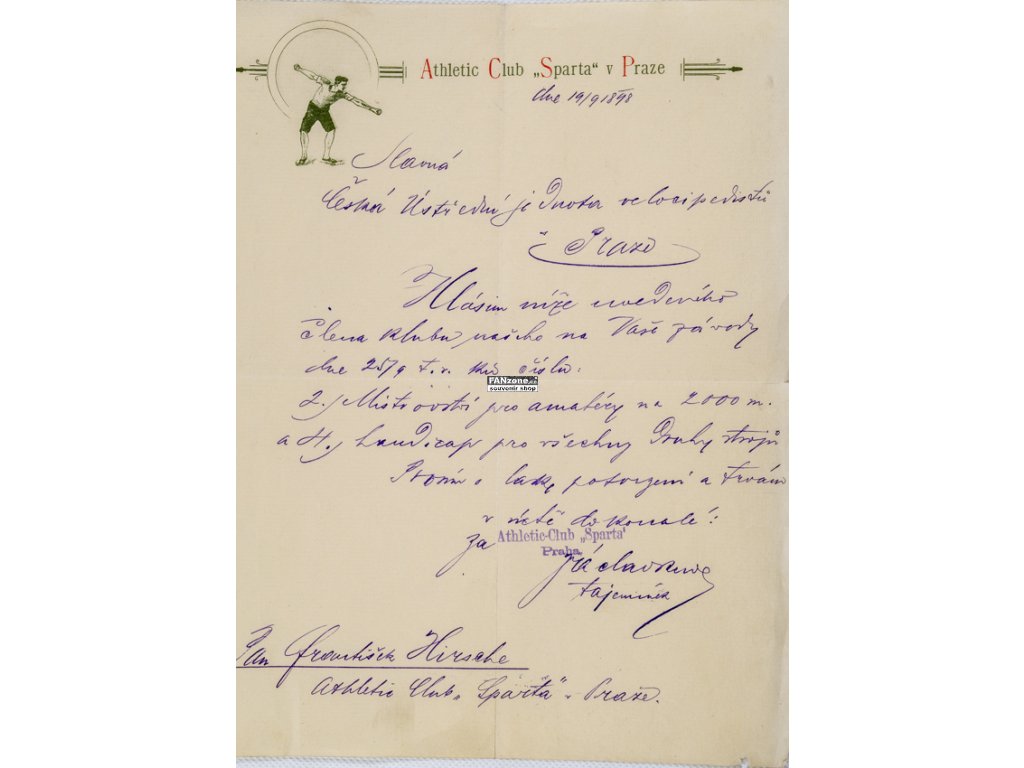 Athletic Club „Sparta“ v Praze
dne 19/9 1898
Slavná
Česká Ústřední jednota velocipedistů
v Praze
Hlásím níže uvedeného
člena klubu našeho na Vaše závody
dne 25/9 t. r. ku číslu:
2.) Mistrovství pro amatéry na 2000 m.
a 4.) handicap pro všechny druhy strojů
Prosím o lask. potvrzení a trvám
v úctě dokonalé:
za
Athletic-Club „Sparta“
Praha.
tajemník
Pan František Hirsche
Athletic Club „Sparta“ v Praze.
FANzone.cz
souvenir shop